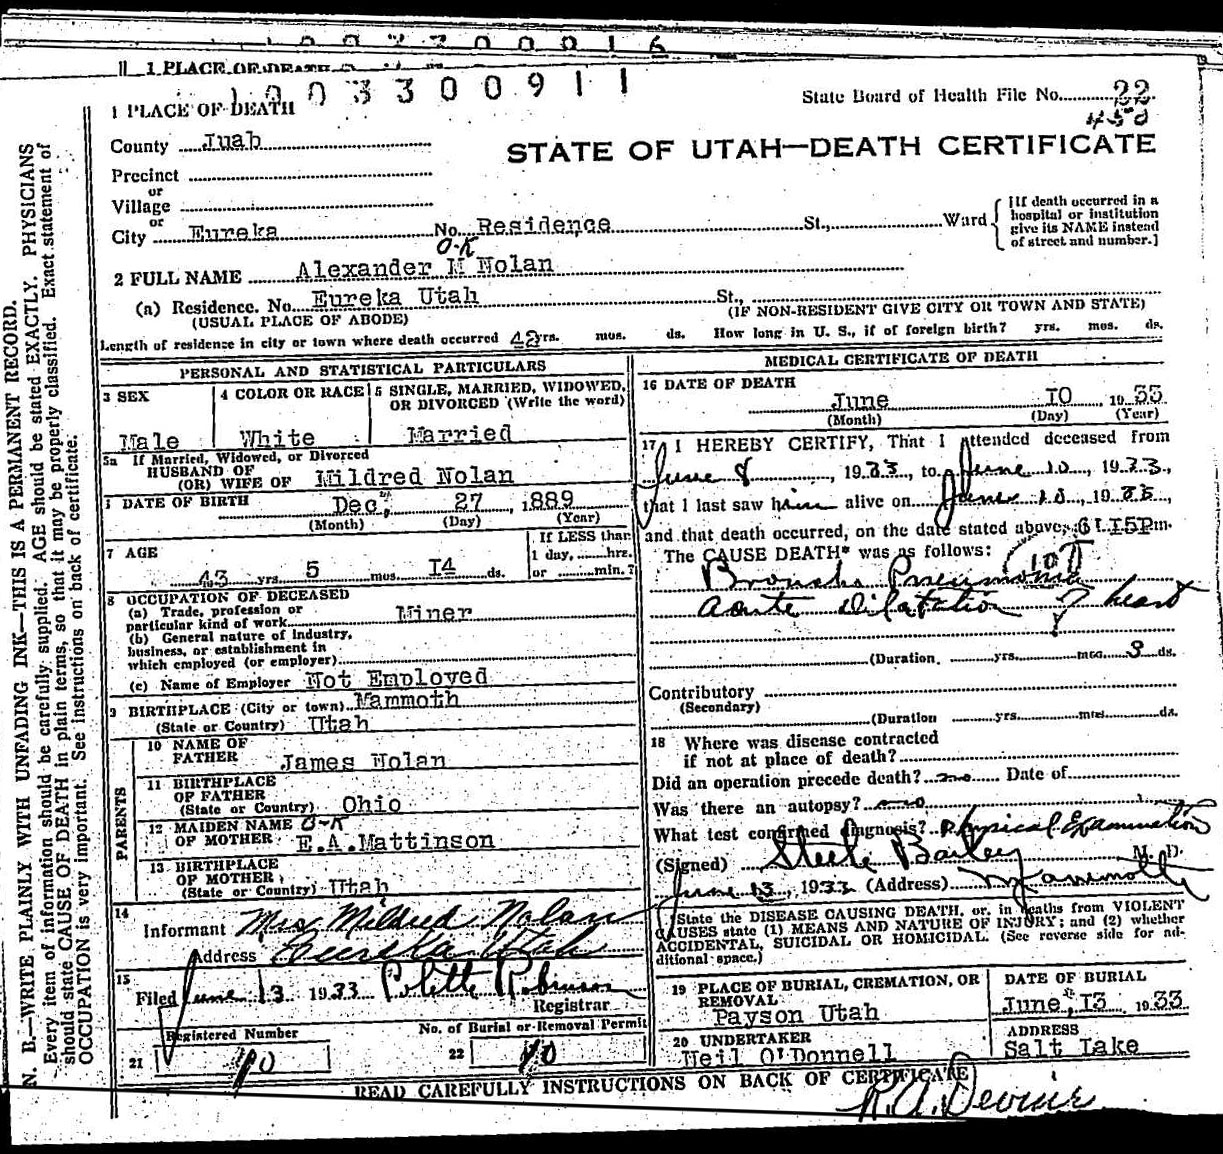 1003300916
1 PLACE OF DEATH
1003300911
1 PLACE OF DEATH
State Board of Health File No. 22
450
County Juab
STATE OF UTAH—DEATH CERTIFICATE
Precinct
or
Village
or
City Eureka No. Residence St., Ward
[If death occurred in a hospital or institution give its NAME instead of street and number.]
O-K
2 FULL NAME Alexander M Nolan
(a) Residence. No. Eureka Utah St.,
(USUAL PLACE OF ABODE) (IF NON-RESIDENT GIVE CITY OR TOWN AND STATE)
Length of residence in city or town where death occurred 42 yrs. mos. ds. How long in U. S., if of foreign birth? yrs. mos. ds.
PERSONAL AND STATISTICAL PARTICULARS
3 SEX
Male
4 COLOR OR RACE
White
5 SINGLE, MARRIED, WIDOWED, OR DIVORCED (Write the word)
Married
5a If Married, Widowed, or Divorced
HUSBAND OF
(OR) WIFE OF Mildred Nolan
DATE OF BIRTH Dec, 27, 1889
(Month) (Day) (Year)
7 AGE
43 yrs. 5 mos. 14 ds.
If LESS than
1 day, hrs.
or min.?
8 OCCUPATION OF DECEASED
(a) Trade, profession or
particular kind of work Miner
(b) General nature of Industry,
business, or establishment in
which employed (or employer)
(c) Name of Employer Not Employed
9 BIRTHPLACE (City or town) Mammoth
(State or Country) Utah
PARENTS
10 NAME OF
FATHER James Nolan
11 BIRTHPLACE
OF FATHER
(State or Country) Ohio
12 MAIDEN NAME O-K
OF MOTHER E.A.Mattinson
13 BIRTHPLACE
OF MOTHER
(State or Country) Utah
14
Informant Mrs Mildred Nolan
Address Eureka Utah
15
Filed June 13 1933 Robinson
Registrar
Registered Number
21 10
No. of Burial or Removal Permit
22 10
MEDICAL CERTIFICATE OF DEATH
16 DATE OF DEATH
June 10, 1933
(Month) (Day) (Year)
17 I HEREBY CERTIFY, That I attended deceased from
June 8, 1933, to June 10, 1933,
that I last saw him alive on June 10, 1933,
and that death occurred, on the date stated above, 6 I5P m.
The CAUSE DEATH* was as follows:
107
Broncho Pneumonia
acute dilatation of heart
(Duration yrs. mos. 3 ds.
Contributory
(Secondary)
(Duration yrs. mos. ds.
18 Where was disease contracted
if not at place of death?
Did an operation precede death? no Date of
Was there an autopsy? no
What test confirmed diagnosis? Physical Examination
(Signed) Steele Bailey M. D.
June 13, 1933 (Address) Mammoth
State the DISEASE CAUSING DEATH, or, in deaths from VIOLENT
CAUSES state (1) MEANS AND NATURE OF INJURY; and (2) whether
ACCIDENTAL, SUICIDAL OR HOMICIDAL. (See reverse side for additional space.)
19 PLACE OF BURIAL, CREMATION, OR
REMOVAL
Payson Utah
DATE OF BURIAL
June, 13, 1933
20 UNDERTAKER
Neil O'Donnell
ADDRESS
Salt Lake
READ CAREFULLY INSTRUCTIONS ON BACK OF CERTIFICATE
R. A. Devine
N. B.—WRITE PLAINLY WITH UNFADING INK—THIS IS A PERMANENT RECORD.
Every item of information should be carefully supplied. AGE should be stated EXACTLY. PHYSICIANS
should state CAUSE OF DEATH in plain terms, so that it may be properly classified. Exact statement of
OCCUPATION is very important. See instructions on back of certificate.